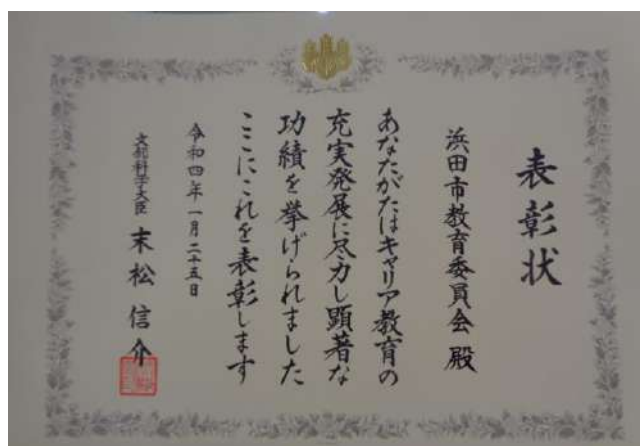 表彰状
浜田市教育委員会 殿
あなたがたはキャリア教育の
充実発展に尽力し顕著な
功績を挙げられました
ここにこれを表彰します
令和四年一月二十五日
文部科学大臣 末松信介